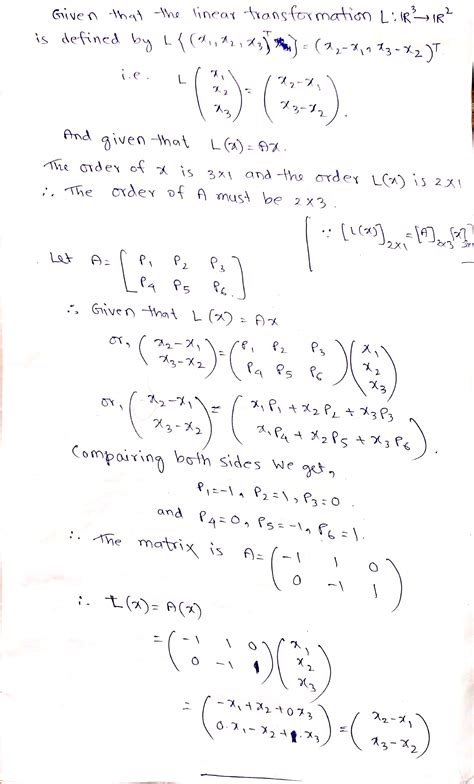 Given that the linear transformation L: ℝ³→ℝ²
is defined by L{(x₁, x₂, x₃)ᵀ} = (x₂-x₁, x₃-x₂)ᵀ
i.e. L(x₁ x₂ x₃) = (x₂-x₁ x₃-x₂).
And given that L(x)=Ax.
The order of x is 3x1 and the order L(x) is 2x1
∴ The order of A must be 2x3.
[∵ [L(x)]₂ₓ₁ = [A]₂ₓ₃ [x]₃ₓ₁
Let A = [P₁ P₂ P₃ P₄ P₅ P₆.]
∴ Given that L(x) = Ax
or, (x₂-x₁ x₃-x₂) = (P₁ P₂ P₃ P₄ P₅ P₆)(x₁ x₂ x₃)
or, (x₂-x₁ x₃-x₂) = (x₁P₁ + x₂P₂ + x₃P₃ x₁P₄ + x₂P₅ + x₃P₆).
Compairing both sides we get,
P₁=-1, P₂=1, P₃=0.
and P₄=0, P₅=-1, P₆=1.
∴ The matrix is A = (-1 1 0 0 -1 1)
∴ L(x) = A(x)
= (-1 1 0 0 -1 1)(x₁ x₂ x₃)
= (-x₁+x₂+0x₃ 0.x₁-x₂+1.x₃) = (x₂-x₁ x₃-x₂)